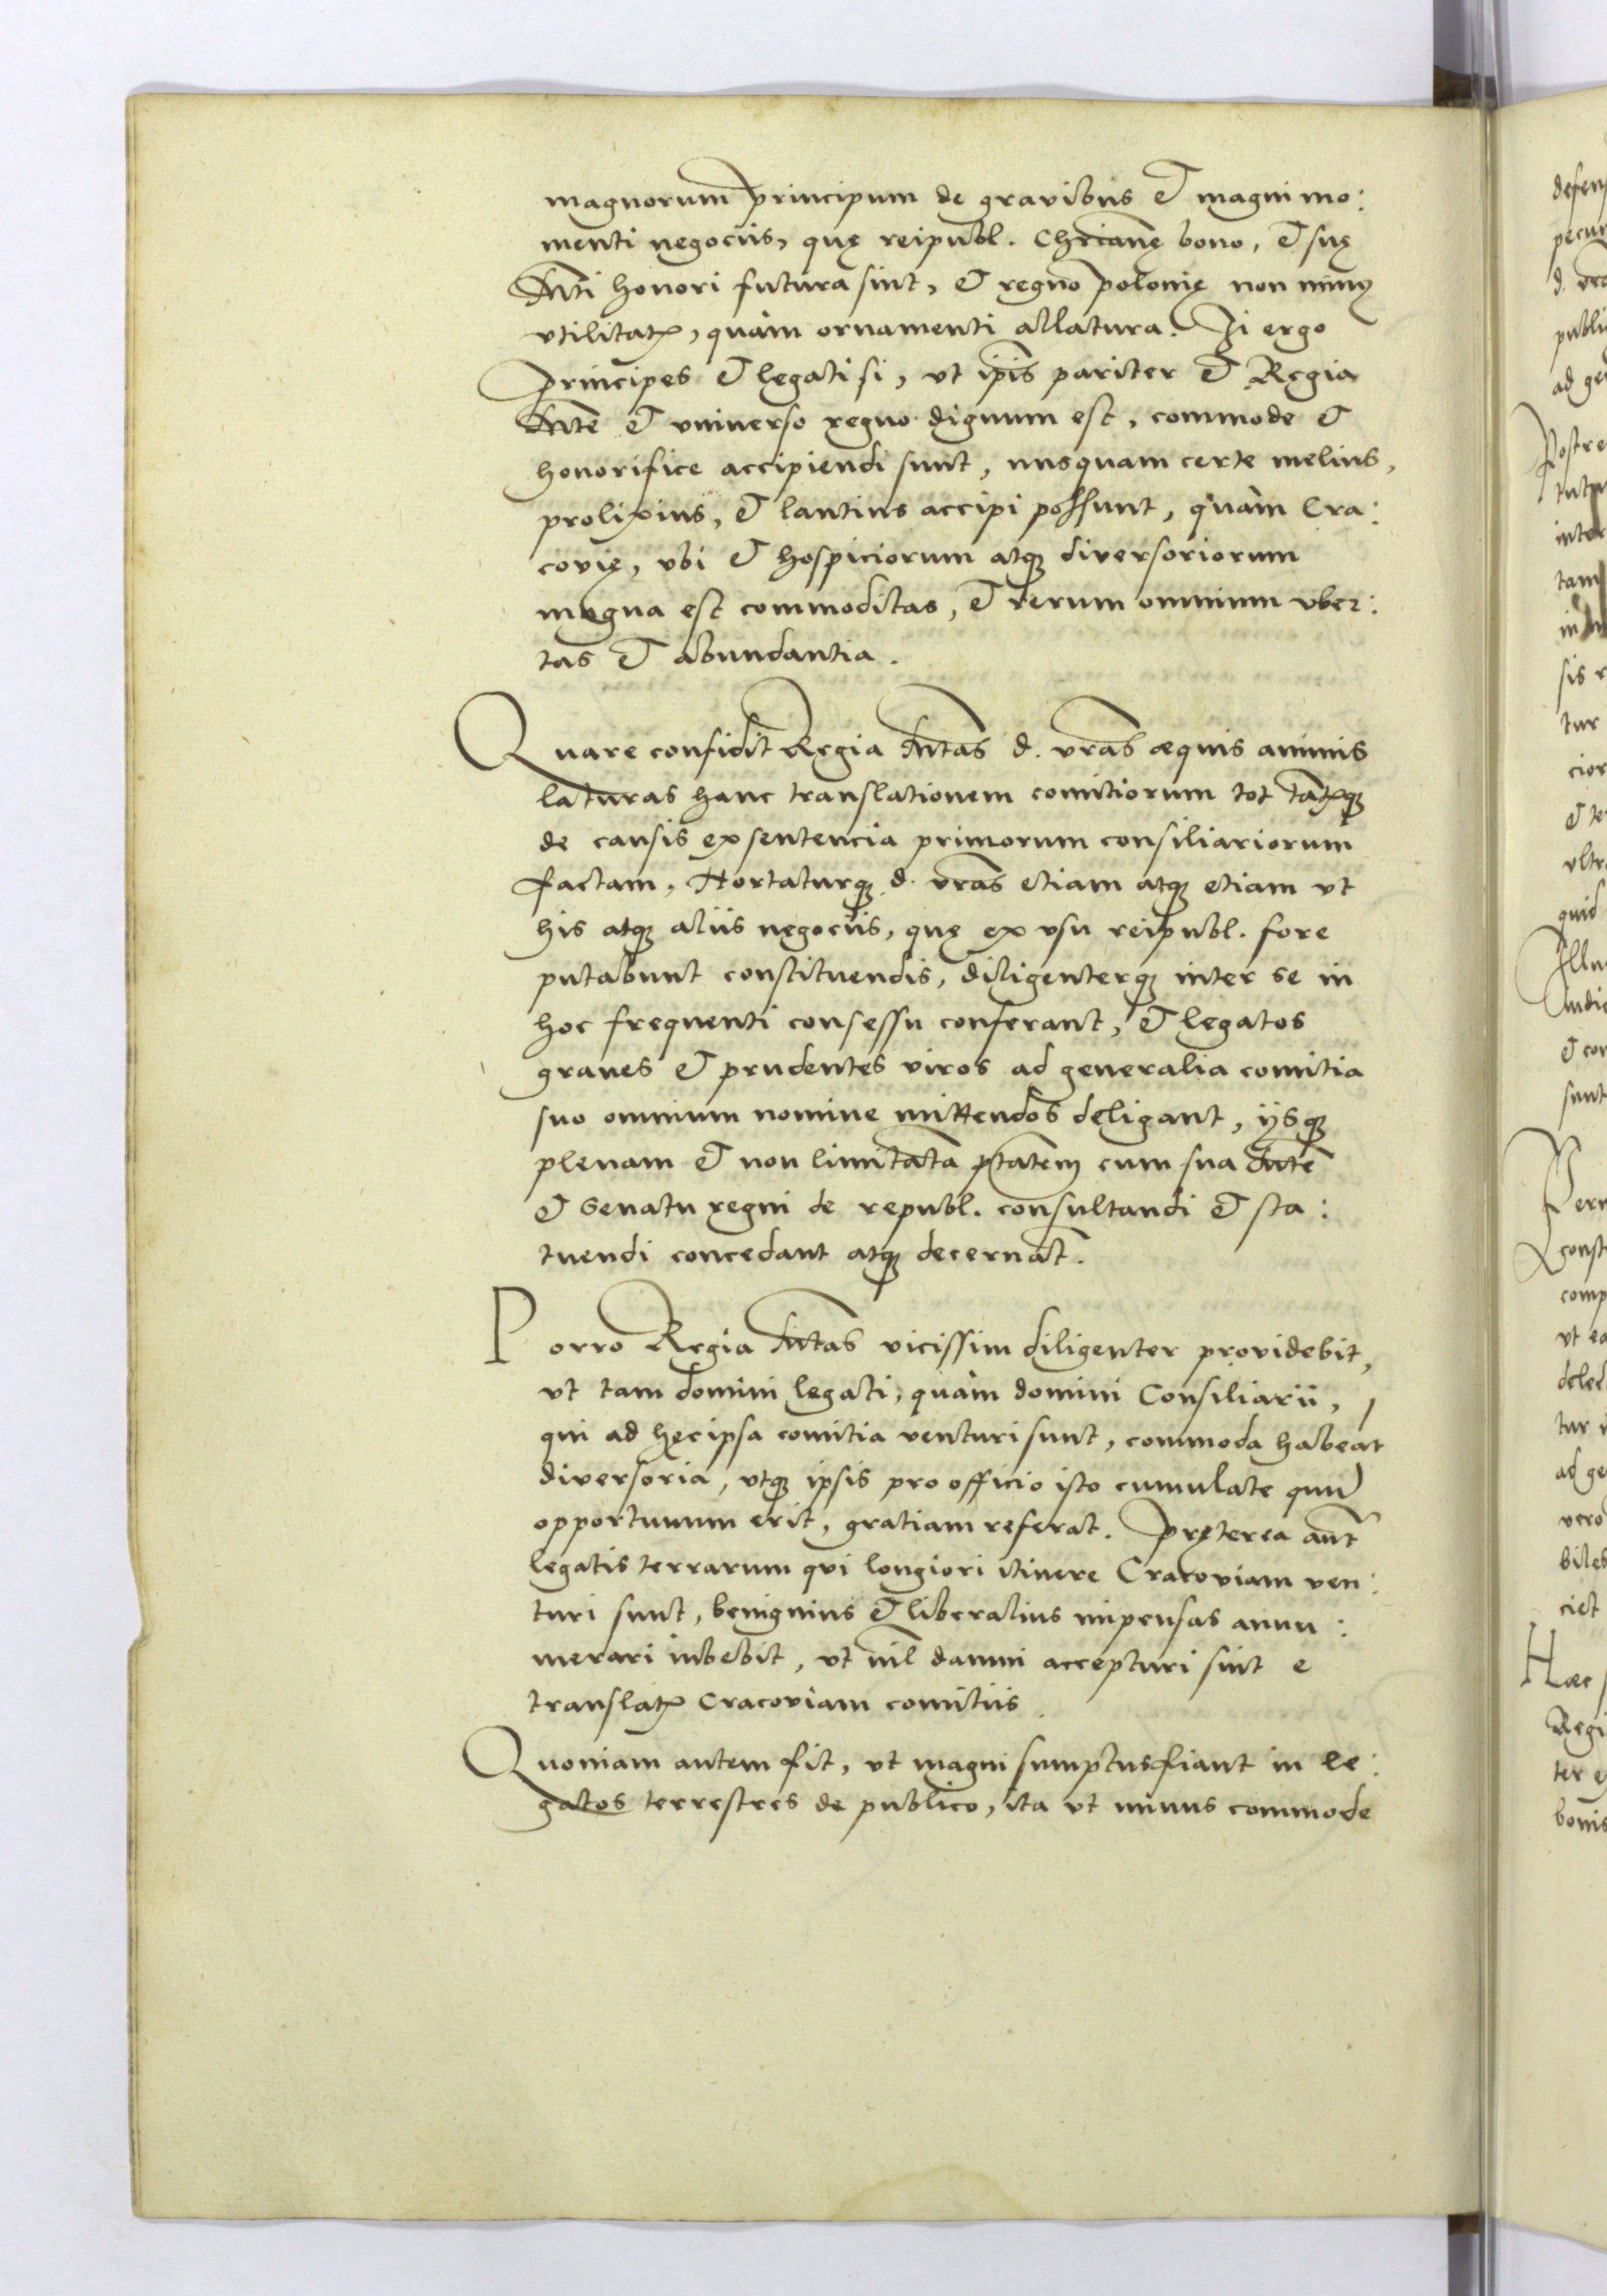 magnorum principum de gravibus et magni mo:
menti negociis, quę reipubl. Chrianę bono, et suę
Mti honori futura sint, et regno polonię non minus
utilitatis, quàm ornamenti allatura. Ii ergo
principes et legati si, ut ipis pariter et Regia
Mte et universo regno dignum est, commode et
honorifice accipiendi sunt, nusquam certe melius,
prolixius, et lautius accipi possunt, quàm Cra:
covię, ubi et hospiciorum atque diversoriorum
magna est commoditas, et rerum omnium uber:
tas et abundantia.
Quare confidit Regia Mtas d. vras æquis animis
laturas hanc translationem comitiorum tot tantisque
de causis ex sentencia primorum consiliariorum
factam, Hortaturque d. vras etiam atque etiam ut
his atque aliis negociis, quę ex usu reipubl. fore
putabunt constituendis, diligenterque inter se in
hoc frequenti consessu conferant, et legatos
graves et prudentes viros ad generalia comitia
suo omnium nomine mittendos deligant, iisque
plenam et non limitata ptatem cum sua Mte
et Senatu regni de republ. consultandi et sta:
tuendi concedant atque decernat.
Porro Regia Mtas vicissim diligenter providebit,
ut tam domini legati, quàm domini Consiliarii,
qui ad hęc ipsa comitia venturi sunt, commoda habeat
diversoria, utque ipsis pro officio isto cumulate quum
opportunum erit, gratiam referat. Pręterea aut
legatis terrarum qui longiori itinere Cracoviam ven:
turi sunt, benignius et liberalius impensas annu:
merari iubebit, ut nil damni accepturi sint e
translatis Cracoviam comitiis.
Quoniam autem fit, ut magni sumptus fiant in le:
gatos terrestres de publico, ita ut minus commode